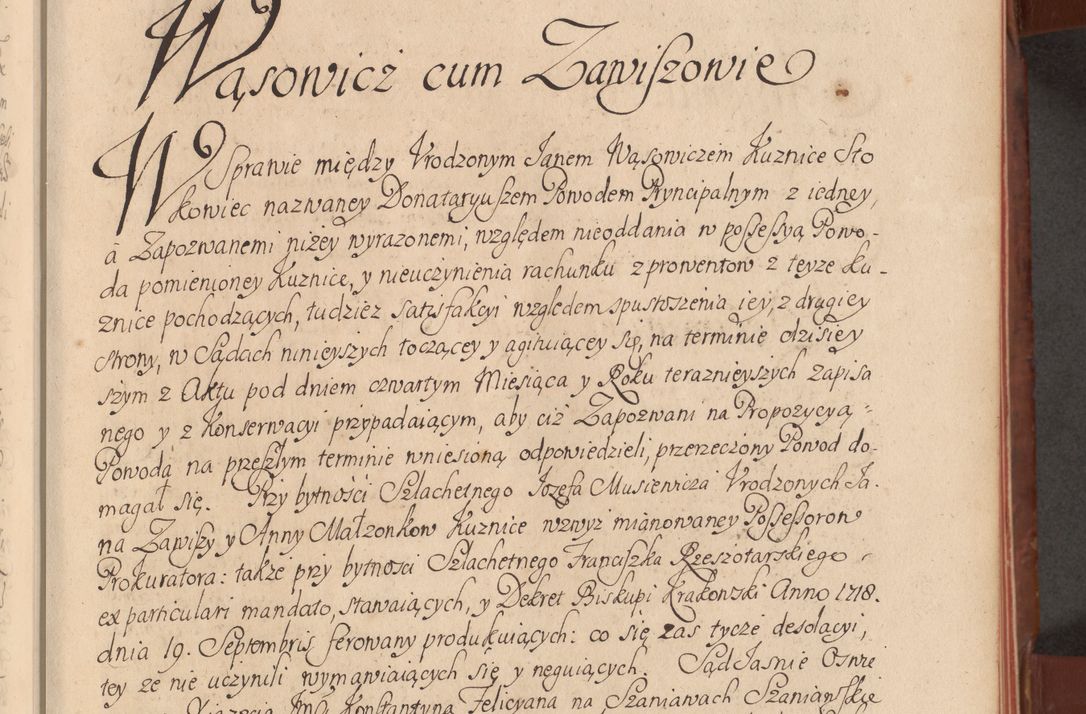 Wąsowicz cum Zawiszowie
W Sprawie między Vrodzonym Janem Wąsowiczem Kuznice Sto
kowiec nazwaney Donataryuszem Powodem Pryncipalnym z iedney,
ā Zapozwanemi niżey wyrazonemi, względem nieoddania w possessyą Powo-
da pomienioney Kuznice, y nieuczynienia rachunku z prowentow z teyze Ku-
znice pochodzących, tudzież satisfakcyi względem spustoszenia iey, z drugiey
strony, w Sądach ninieyszych toczącey y agituiącey się, na terminie dzisiey
szym z Aktu pod dniem czwartym Miesiąca y Roku teraznieyszych zapisa
nego y z Konserwacyi przypadaiącym, aby ciż Zapozwani na Propozycyą
Powoda na przeszłym terminie wniesioną odpowiedzieli, przerzeczony Powod do-
magał się. Przy bytności Szlachetnego Jozefa Musiewicza Vrodzonych Ja.
na Zawiszy y Anny Małzonkow Kuznice wzwyż mianowaney Possessorow
Prokuratora: także przy bytnosci Szlachetnego Franciszka Rzeszotarskiego
ex particulari mandato, stawaiących, y Dekret Biskupi Krakowski Anno 1718.
dnia 19. Septembris ferowany produkuiących: co się zas tycze desolacyi,
tey ze nie uczynili wymawiaiących się y neguiących. Sąd Jasnie Oswie
Xiązęcia Jmci Konstantyna Felicyana na Szaniawach Szaniawskie